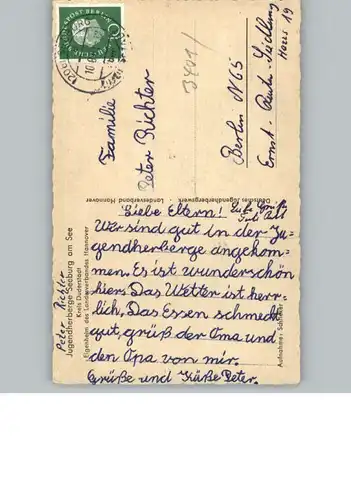 DEUTSCHE BUNDESPOST BERLIN
Familie
Peter Richter
Berlin N 65
Ernst-Reuter-Siedlung
Haus 19
Deutsches Jugendherbergswerk
Landesverband Hannover
Liebe Eltern!
Wir sind gut in der Ju-
gendherberge angekom-
men. Es ist wunderschön
hier. Das Wetter ist herr-
lich. Das Essen schmeckt
gut, grüß der Oma und
den Opa von mir.
Grüße und Küße Peter.
Peter Richter
Jugendherberge Seeburg am See
Kreis Duderstadt
Eigenheim des Landesverbandes Hannover
Aufnahme: